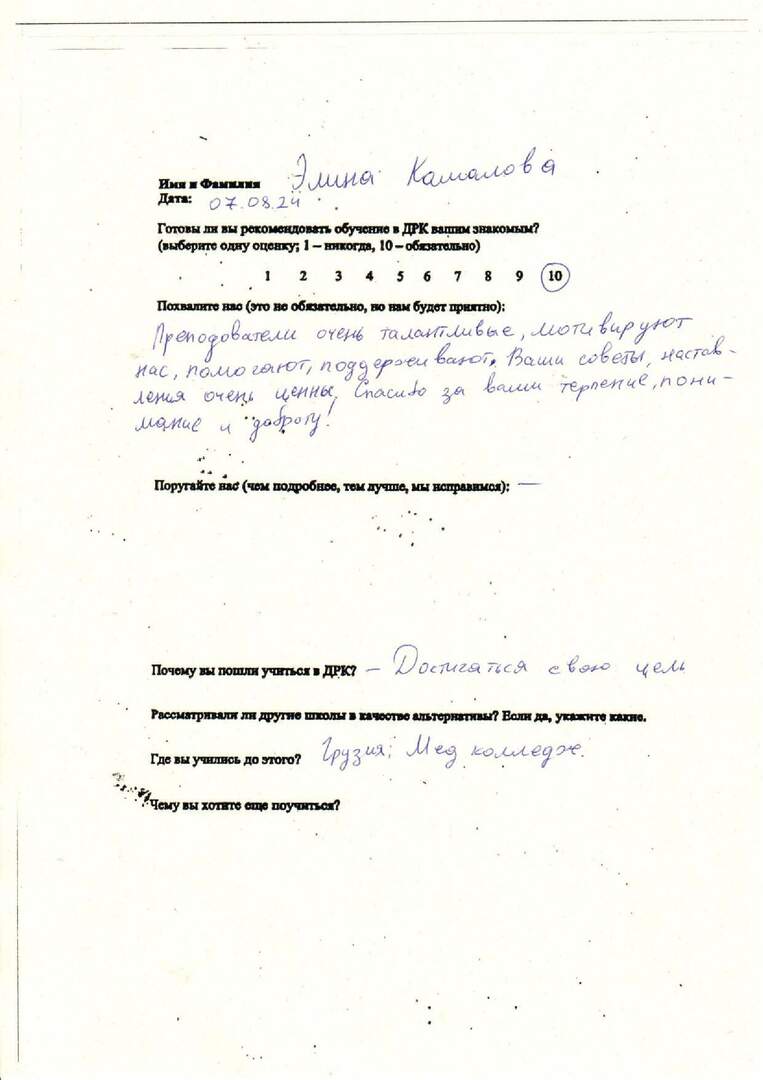 Имя и Фамилия Элина Камалова
Дата: 07.08.24
Готовы ли вы рекомендовать обучение в ДРК вашим знакомым?
(выберите одну оценку; 1 – никогда, 10 – обязательно)
1 2 3 4 5 6 7 8 9 10
Похвалите нас (это не обязательно, но нам будет приятно):
Преподователи очень талантливые, мотивируют
нас, помогают, поддерживают. Ваши советы, настав-
ления очень ценны. Спасибо за ваши терпение, пони-
мание и доброту!
Поругайте нас (чем подробнее, тем лучше, мы исправимся): —
Почему вы пошли учиться в ДРК? – Достигаться свою цель
Рассматривали ли другие школы в качестве альтернативы? Если да, укажите какие.
Где вы учились до этого? Грузия; Мед колледж.
Чему вы хотите еще поучиться?